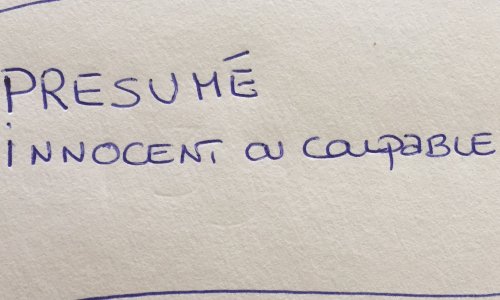 PRESUMÉ
iNNOCENT ou coupaBLE